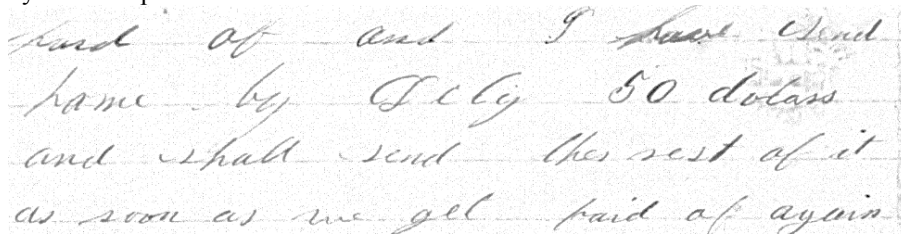 paid of and I have send
hame by 50 dolars
and shall send the rest of it
as soon as we get paid of again